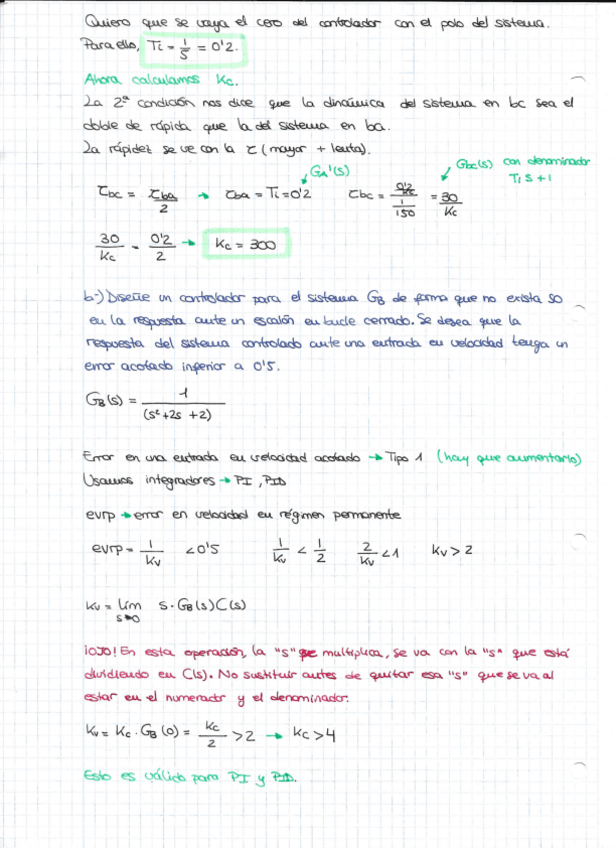 Quiero que se vaya el cero del controlador con el polo del sistema.
Para ello, Ti = 1/5 = 0'2.
Ahora calculamos Kc.
La 2ª condición nos dice que la dinámica del sistema en bc sea el
doble de rápida que la del sistema en ba.
La rapidez se ve con la τ (mayor + lenta).
GA'(s)
Gbc(s) con denominador
Ti s + 1
τbc = τba/2 → τba = Ti = 0'2 τbc = (0'2/Kc)/(1/150) = 30/Kc
30/Kc = 0'2/2 → Kc = 300
b-) Diseñe un controlador para el sistema GB de forma que no exista SO
en la respuesta ante un escalón en bucle cerrado. Se desea que la
respuesta del sistema controlado ante una entrada en velocidad tenga un
error acotado inferior a 0'5.
GB(s) = 1/(s²+2s+2)
Error en una entrada en velocidad acotado → Tipo 1 (hay que aumentarlo)
Usamos integradores → PI, PID
evrp → error en velocidad en régimen permanente
evrp = 1/Kv < 0'5 1/Kv < 1/2 2/Kv < 1 Kv > 2
Kv = lím s→0 s·GB(s)C(s)
¡OJO! En esta operación, la "s" que multiplica, se va con la "s" que está
dividiendo en C(s). No sustituir antes de quitar esa "s" que se va al
estar en el numerador y el denominador.
Kv = Kc·GB(0) = Kc/2 > 2 → Kc > 4
Esto es válido para PI y PID.